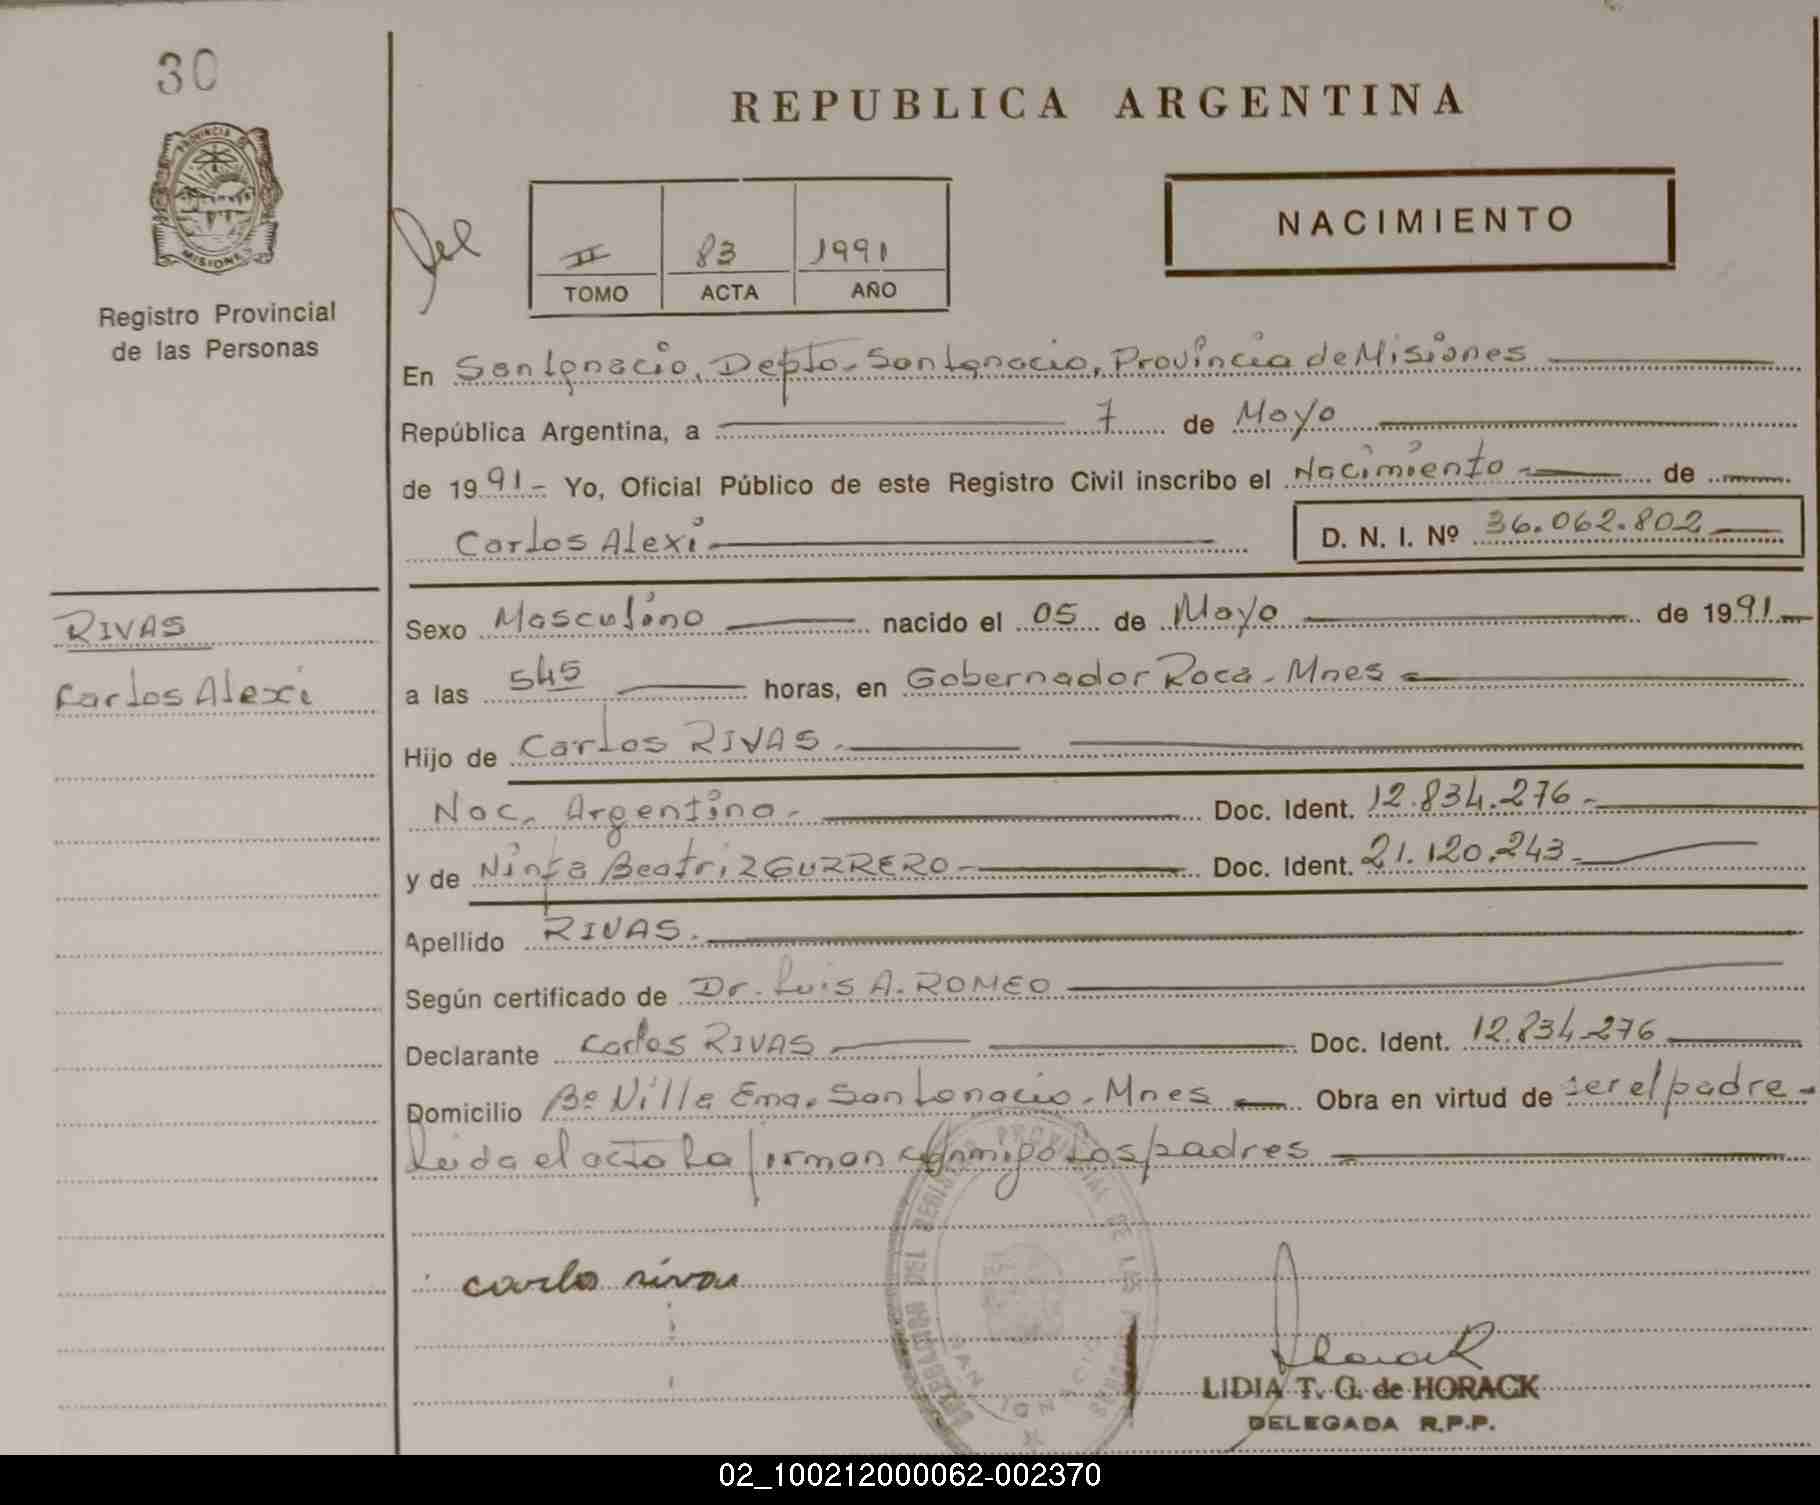 30
PROVINCIA DE
MISIONES
Registro Provincial
de las Personas
REPUBLICA ARGENTINA
NACIMIENTO
II 83 1991
TOMO ACTA AÑO
En San Ignacio, Depto. San Ignacio, Provincia de Misiones
República Argentina, a 7 de Mayo
de 1991- Yo, Oficial Público de este Registro Civil inscribo el Nacimiento - de
Carlos Alexi D. N. I. Nº 36.062.802
RIVAS
Carlos Alexi
Sexo Masculino nacido el 05 de Mayo de 1991
a las 545 horas, en Gobernador Roca - Mnes
Hijo de Carlos RIVAS.
Nac. Argentina. Doc. Ident. 12.834.276-
y de Ninfa Beatriz GURRERO Doc. Ident. 21.120.243-
Apellido RIVAS.
Según certificado de Dr. Luis A. ROMEO
Declarante Carlos RIVAS Doc. Ident. 12.834.276
Domicilio Bº Villa Ema. San Ignacio - Mnes Obra en virtud de ser el padre -
Leida el acta la firman conmigo los padres
carlo rivas
REGISTRO PROVINCIAL DE LAS
SAN IGNACIO
LIDIA T. G. de HORACK
DELEGADA R.P.P.
02_100212000062-002370